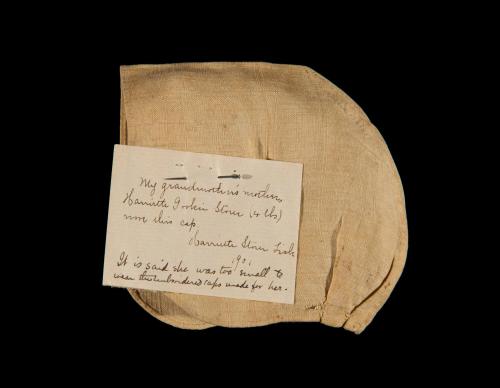 My grandmother's mother,
Harriette Storer (4 lbs)
wore this cap.
Harriette Storer Fisk
It is said she was too small to
wear the embroidered caps made for her.